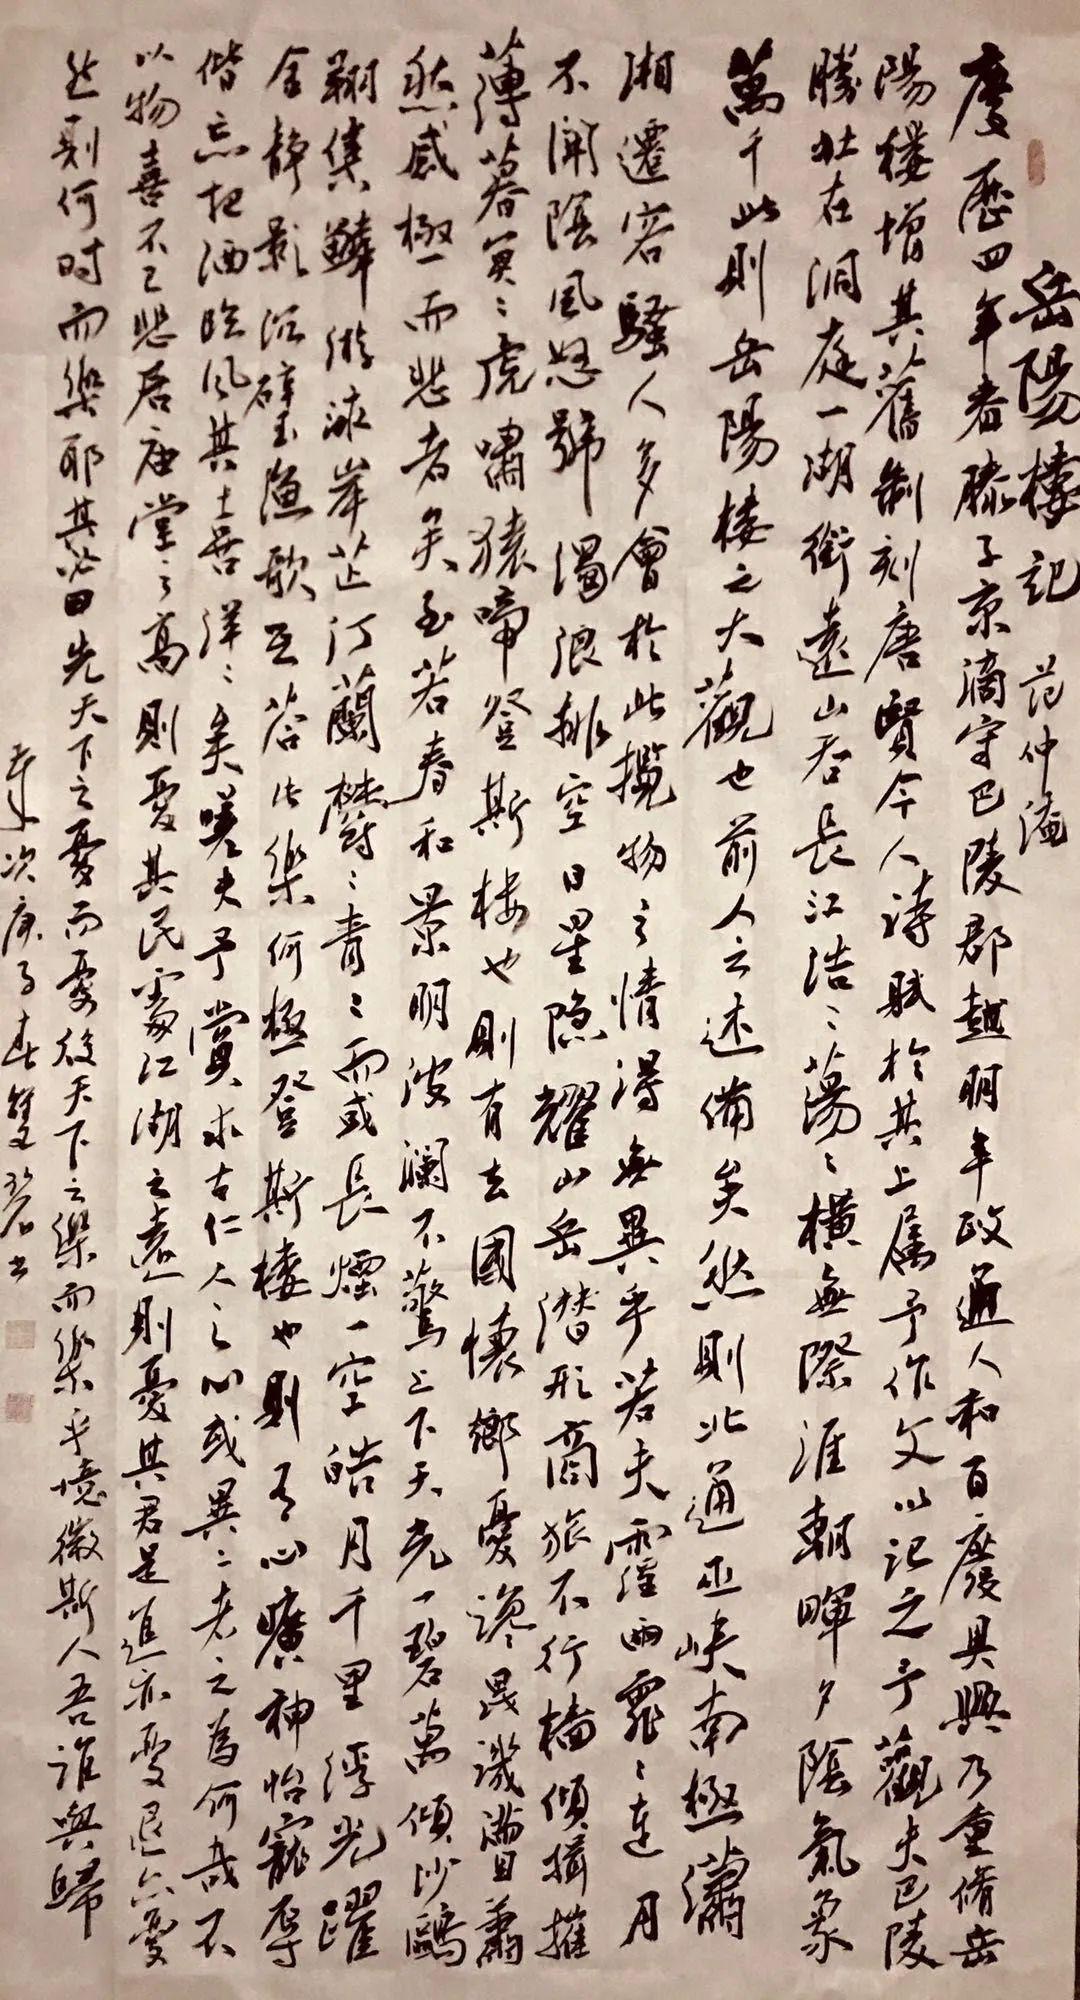 岳陽樓記 范仲淹
慶歷四年春滕子京謫守巴陵郡越明年政通人和百廢具興乃重脩岳
陽樓增其舊制刻唐賢今人詩賦於其上属予作文以记之予觀夫巴陵
勝壯在洞庭一湖銜遠山吞長江浩〻蕩〻橫無際涯朝暉夕陰氣象
萬千此則岳陽樓之大觀也前人之述備矣然則北通巫峽南極瀟
湘遷客騷人多會於此攬物之情得無異乎若夫霪雨霏〻連月
不開陰風怒號濁浪排空日星隐耀山岳潜形商旅不行檣傾揖摧
薄暮冥〻虎嘯猿啼登斯樓也則有去國懷鄉憂讒畏譏滿目蕭
然感極而悲者矣至若春和景明波瀾不驚上下天光一碧萬傾沙鷗
翔集鱗游泳岸芷汀蘭鬱〻青〻而或長煙一空皓月千里浮光躍
金静影沉璧漁歌互答此樂何極登斯樓也則有心曠神怡寵辱
偕忘把酒臨风其士喜洋〻矣嗟夫予嘗求古仁人之心或異二者之為何哉不
以物喜不己悲居庙堂之高則憂其民處江湖之遠則憂其君是進亦憂退亦憂
然則何时而樂耶其必曰先天下之憂而憂後天下之樂而樂乎噫微斯人吾谁與歸
歲次庚子春雙碧书